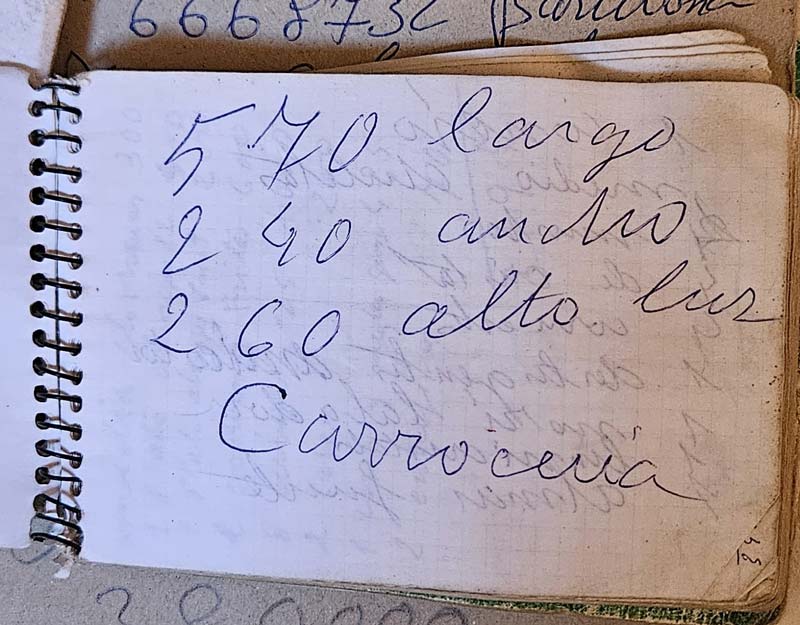 6668732
570 largo
240 ancho
260 alto luz
Carrocería